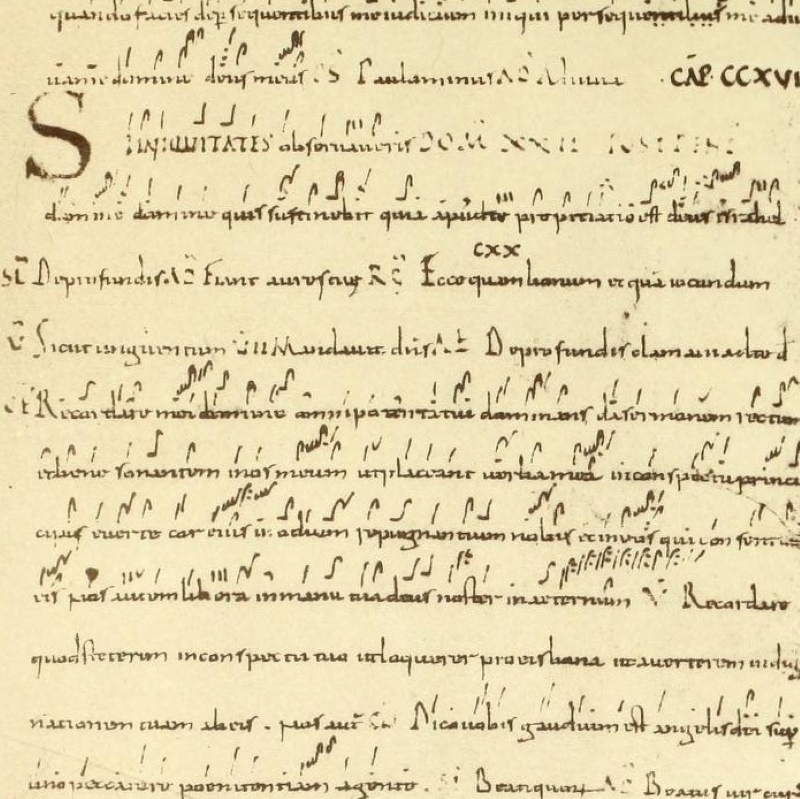 quando facies de persequentibus me iudicium iniqui persequentibus me adiu
uame domine deus meus PS Paulominus AD Alleluia CAP CCXVI
SI INIQUITATES observaveris DOM XXII
domine domine quis sustinebit quia apud te propitiatio est deus israhel
CXX
De profundis AD Fiant aures tuę RG Ecce quam bonum et quā iocundum
V Sicut unguentum VII Mandavit dn̄s AL De profundis clamavi ad te d
OF Recordare mei domine omnipotentatui dominans da sermonem rectum
et bene sonantem in os meum uti placeant verba mea in conspectu princi
cuius everte cor eius in odium repugnantium nobis et in eos qui con sentiunt
eis nos autem libera in manu tua deus noster in aeternum V Recordare
quod steterim in conspectu tuo ut loquerer pro eis bona ut averterem indig
nationem tuam ab eis . nos aut CO Dico vobis gaudium est angelis dei sup
uno peccatore poenitentiam agente . Beati quor AD Beatus vir cuius